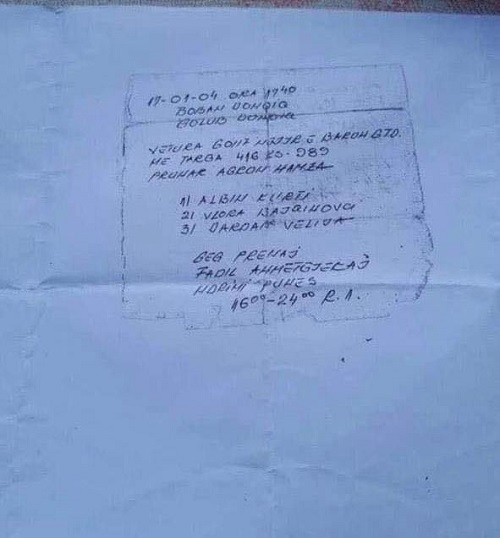 17-01-04 ORA 1740
BOBAN DONQIG
GOLUB DONQIG
VETURA GOLF NGJYRË BARDH GTD.
ME TARGA 416 KS-989
PRONAR AGRON HAMZA
1) ALBIN KURTI
2) VLORA BAJQINOVCI
3) DARDAN VELIJA
GEG PRENAJ
FADIL AHMETGJEKAJ
NDRIMI PUNES
16⁰⁰-24⁰⁰ R.A.